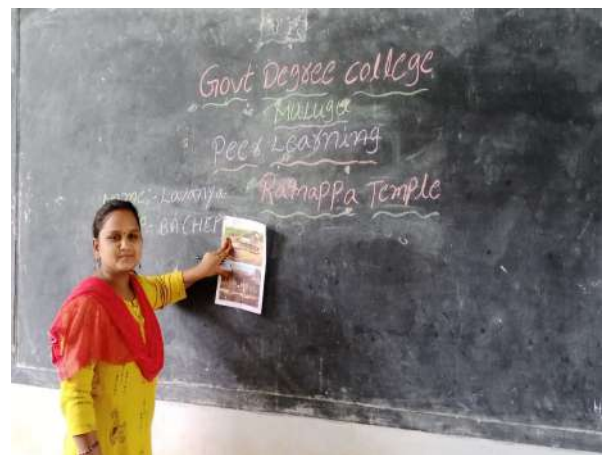 Govt Degree college
Mulugu
Peer Learning
Ramappa Temple
Name:- Lavanya
BA(HEP